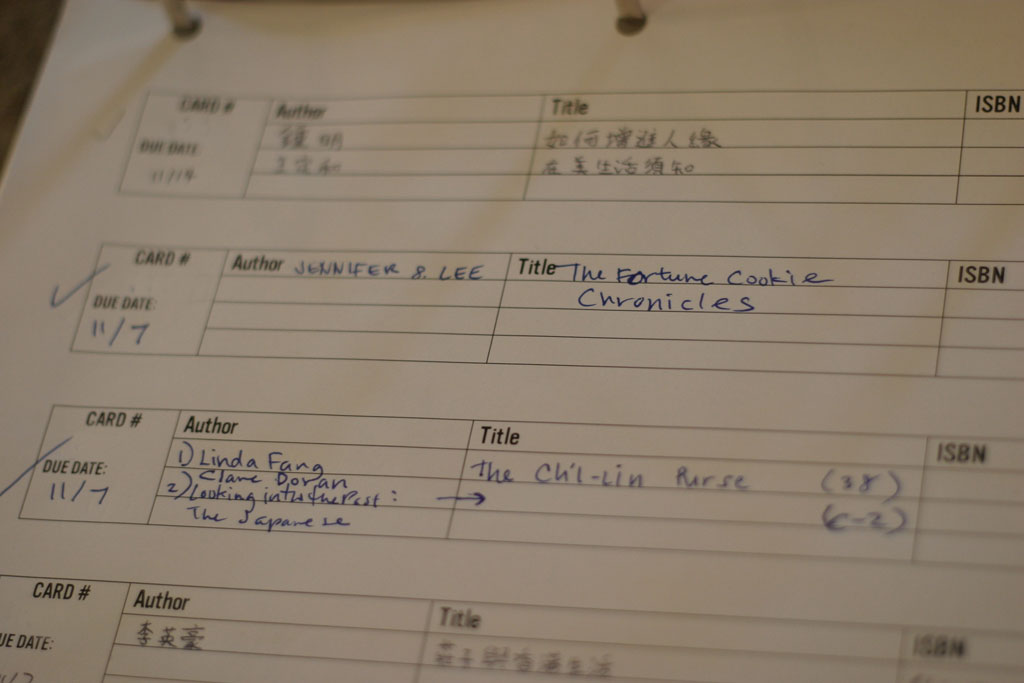 CARD # Author Title ISBN
如何增進人緣
DUE DATE: 明
在美生活須知
11/14
CARD # Author JENNIFER 8. LEE Title The Fortune Cookie ISBN
Chronicles
DUE DATE:
11/7
CARD # Author Title ISBN
1) Linda Fang The Ch'i-Lin Purse (38)
DUE DATE: Clare Doran
11/7 2) Looking into the Past: → (C-2)
The Japanese
CARD # Author Title ISBN
李英豪
UE DATE: 生活